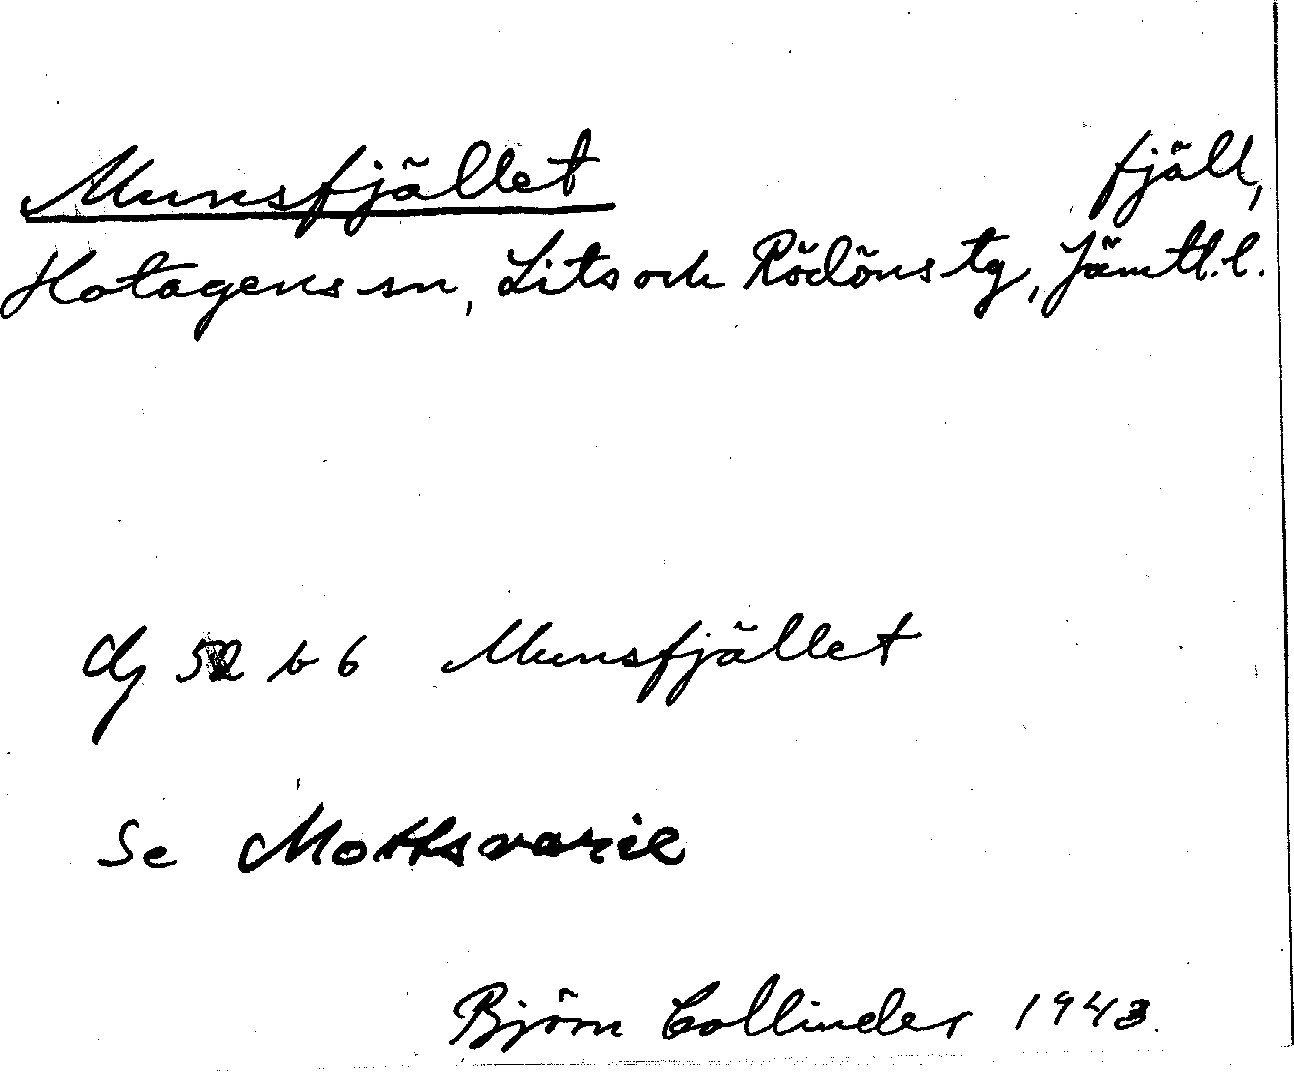 Munsfjället fjäll,
Hotagens sn, Lits och Rödöns tg, Jämtl.l.
dj 52 b 6 Munsfjället
Se Mottsvarie
Björn Collinder 1943.